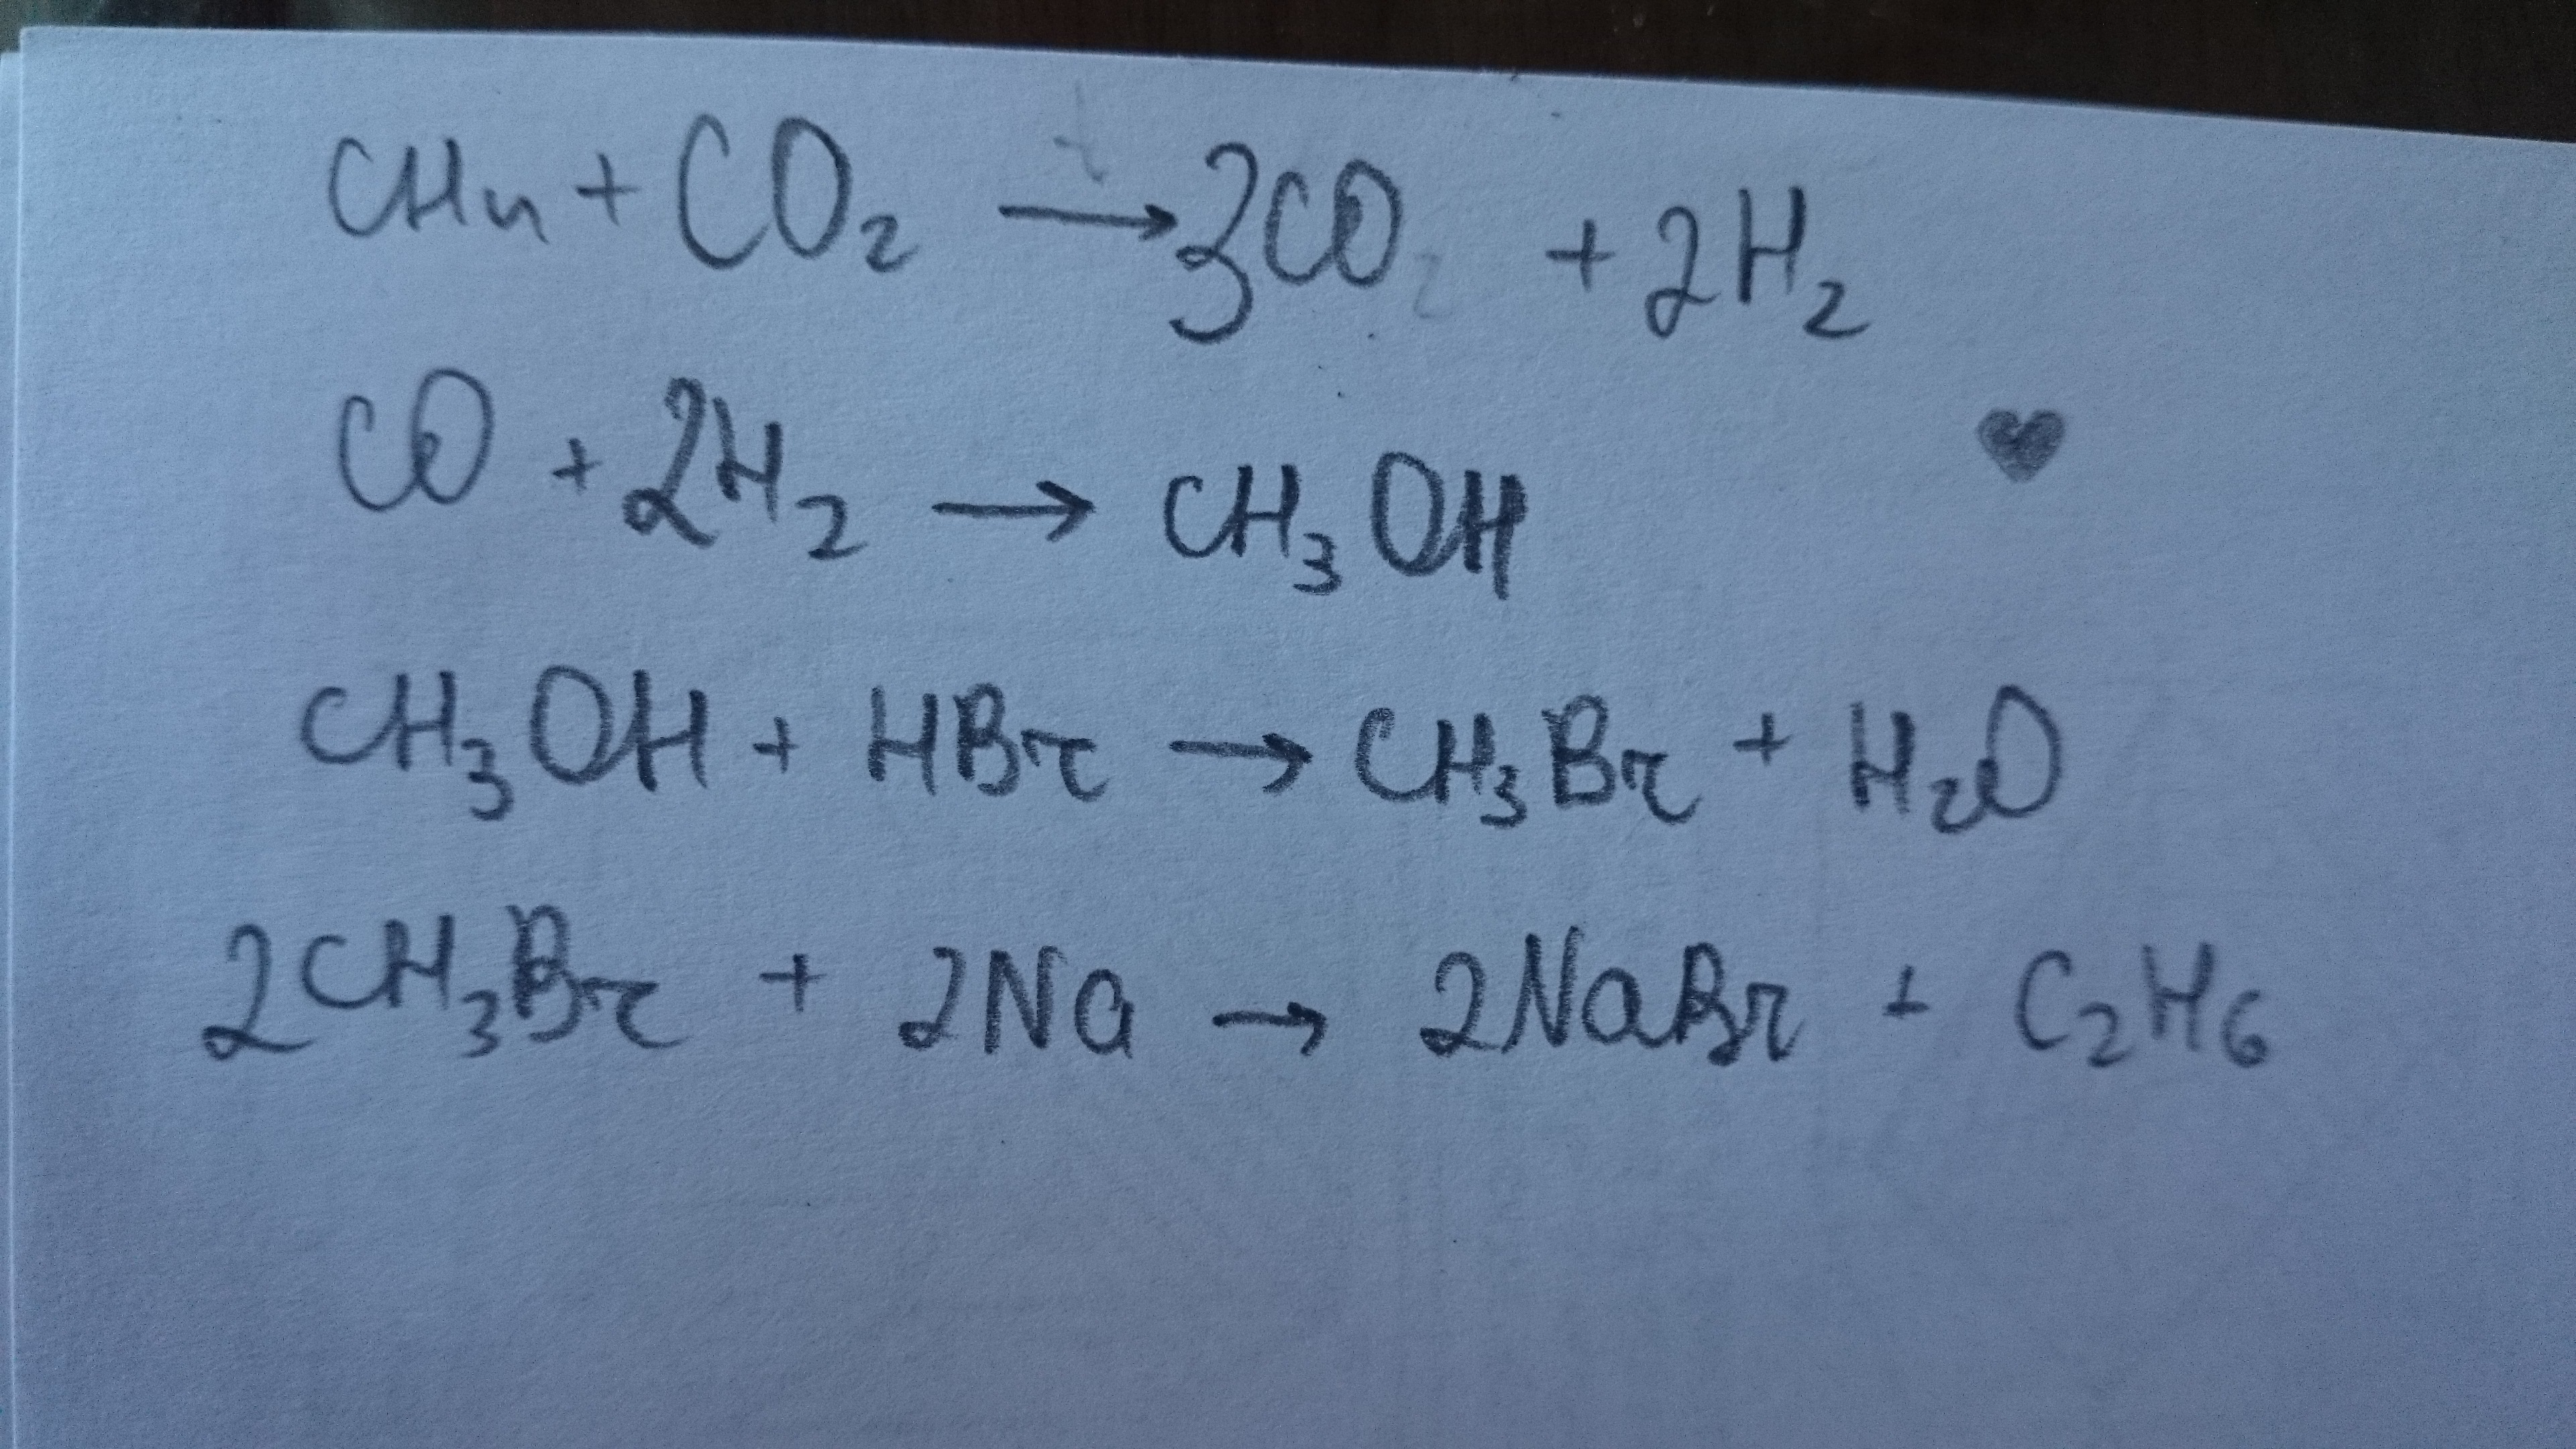 CH₄ + CO₂ → 3CO + 2H₂
CO + 2H₂ → CH₃OH
CH₃OH + HBr → CH₃Br + H₂O
2CH₃Br + 2Na → 2NaBr + C₂H₆